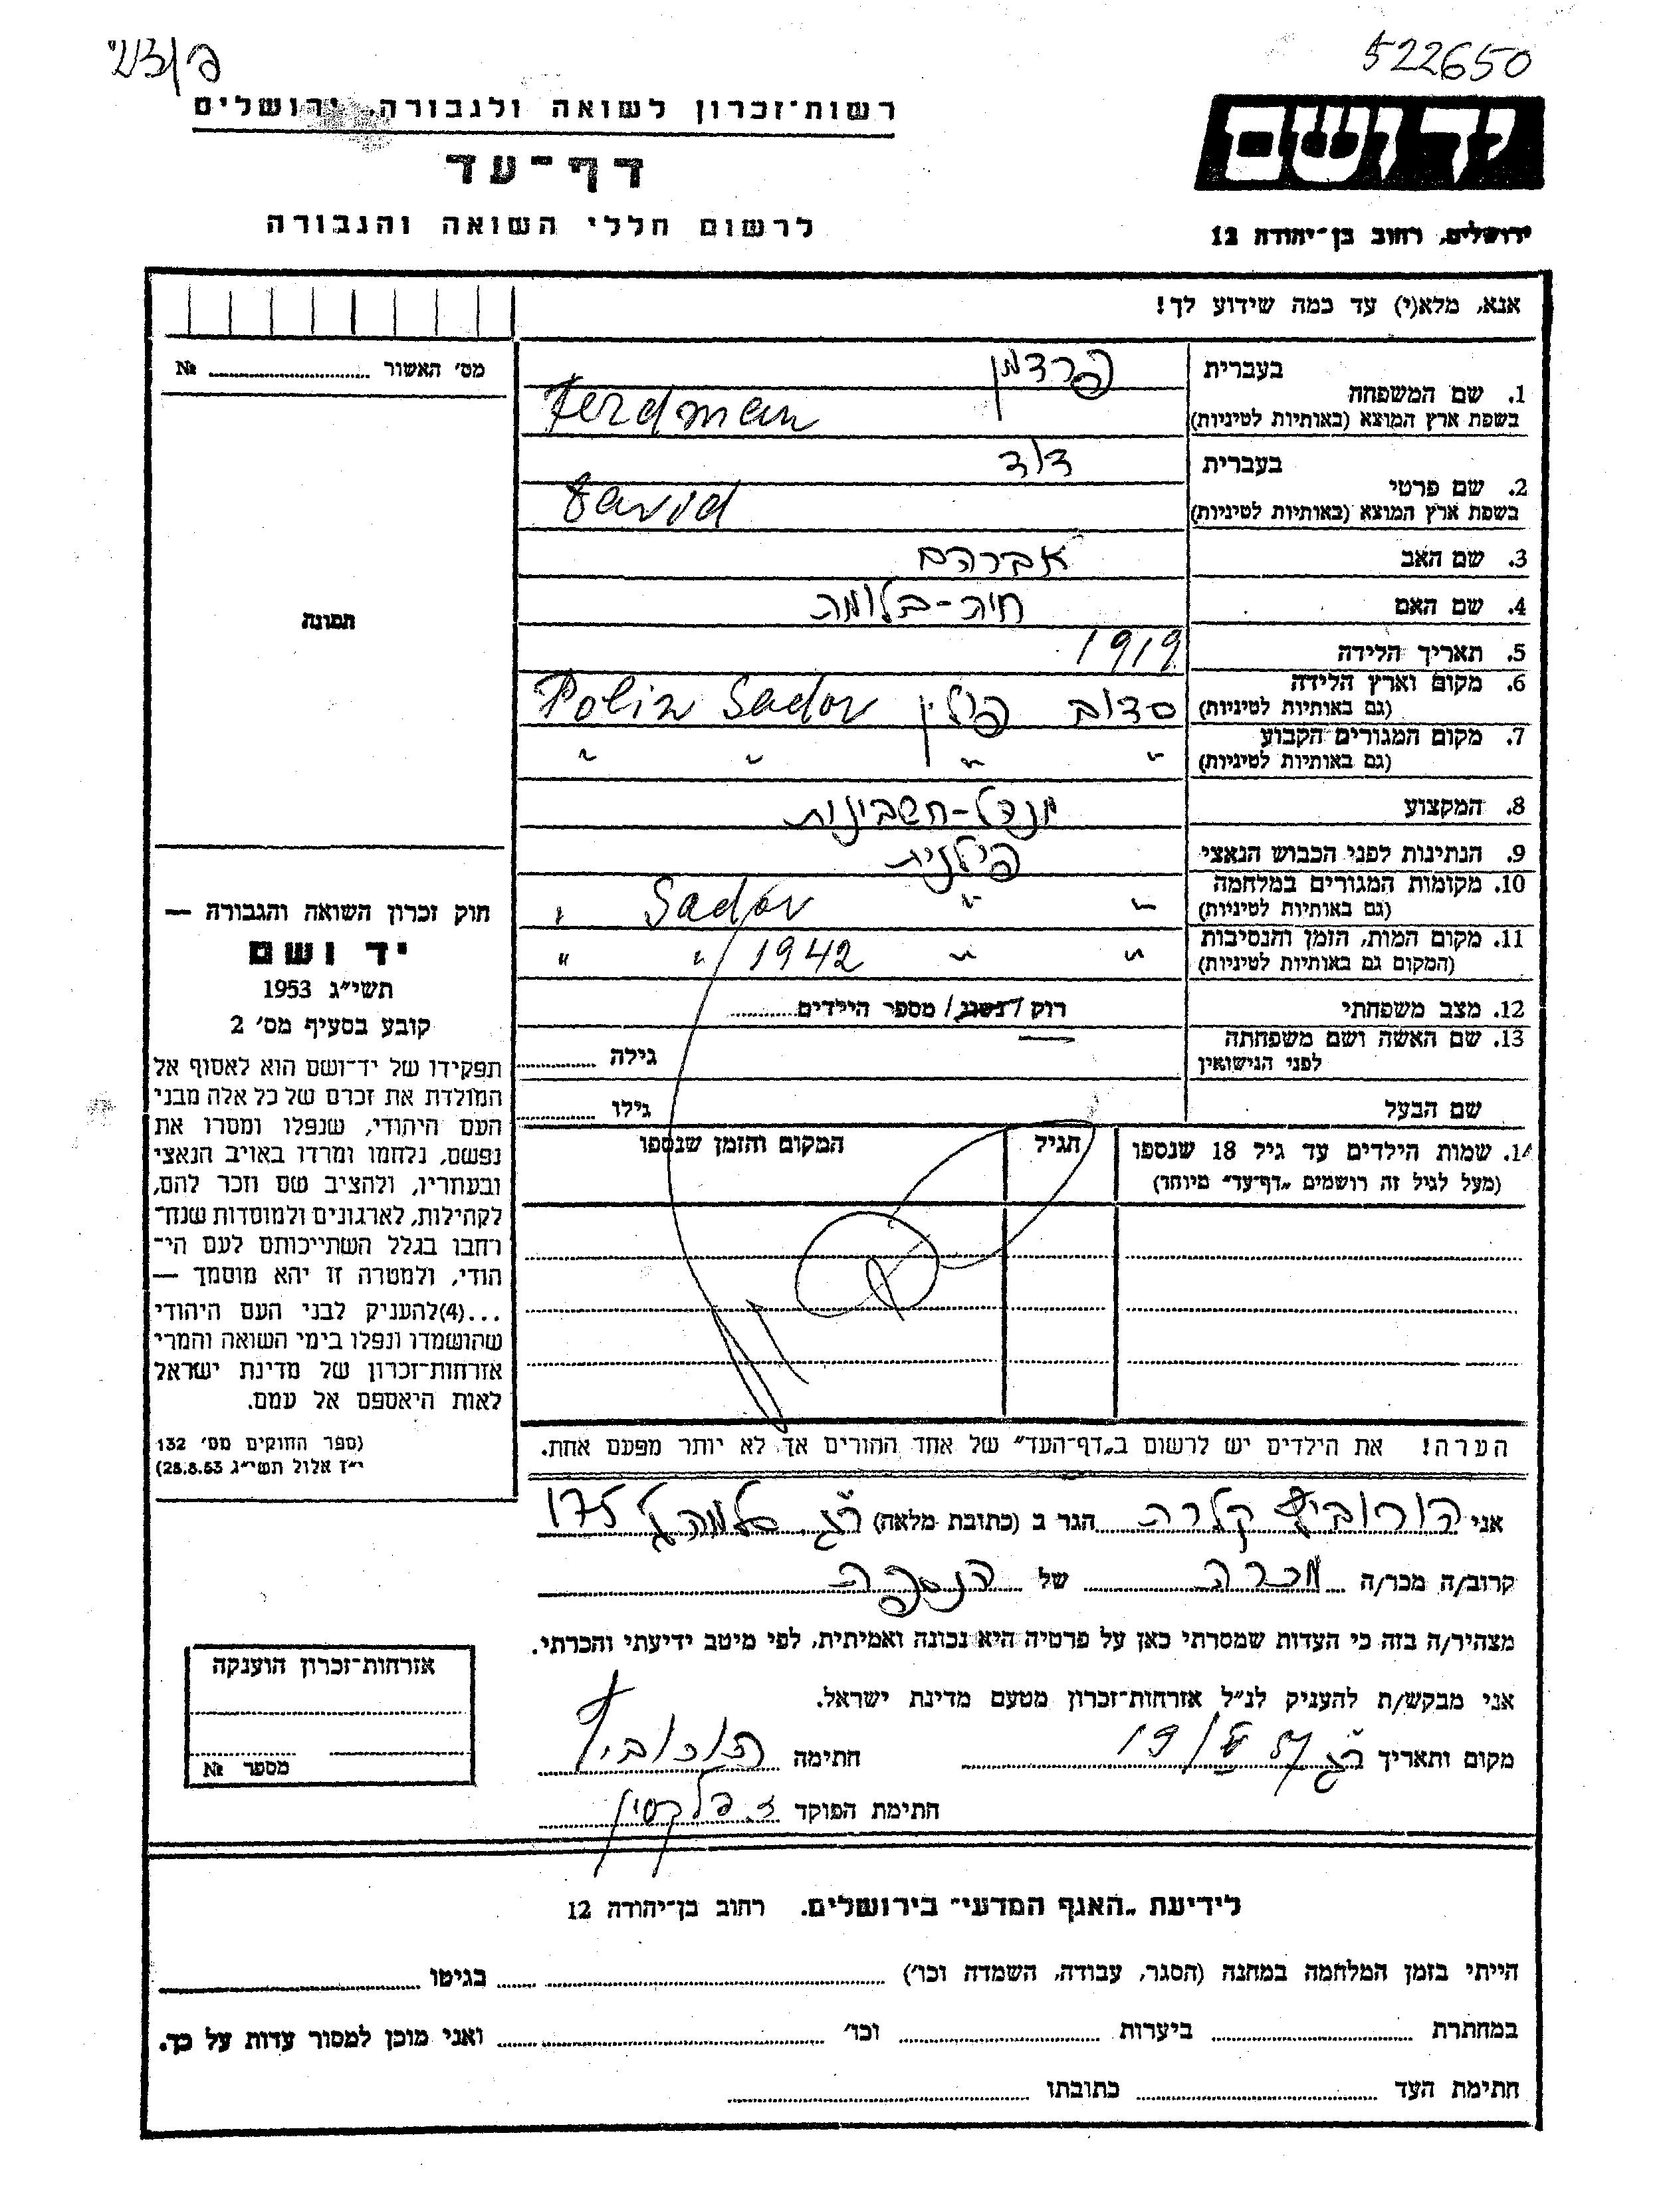 522650
יד ושם
ירושלים, רחוב בן־יהודה 12
רשות־זכרון לשואה ולגבורה, ירושלים
דף־עד
לרשום חללי השואה והגבורה
אנא, מלא(י) עד כמה שידוע לך!
מס׳ האשור № ........
תמונה
1. שם המשפחה
בעברית פרדמן
בשפת ארץ המוצא (באותיות לטיניות) Ferdman
2. שם פרטי
בעברית דוד
בשפת ארץ המוצא (באותיות לטיניות) David
3. שם האב אברהם
4. שם האם חיה-בלומה
5. תאריך הלידה 1919
6. מקום וארץ הלידה
(גם באותיות לטיניות) סדוב פולין Polin Sadov
7. מקום המגורים הקבוע
(גם באותיות לטיניות) " " " "
8. המקצוע מנהל-חשבונות
9. הנתינות לפני הכבוש הנאצי פולנית
10. מקומות המגורים במלחמה
(גם באותיות לטיניות) " " Sadov "
11. מקום המות, הזמן והנסיבות
(המקום גם באותיות לטיניות) " " 1942 " "
12. מצב משפחתי רוק / נשוי / מספר הילדים........
13. שם האשה ושם משפחתה
לפני הנישואין גילה ........
שם הבעל גילו ........
14. שמות הילדים עד גיל 18 שנספו
(מעל לגיל זה רושמים „דף־עד” מיוחד)
הגיל
המקום והזמן שנספו
הערה! את הילדים יש לרשום ב„דף־העד” של אחד ההורים אך לא יותר מפעם אחת.
חוק זכרון השואה והגבורה —
יד ושם
תשי״ג 1953
קובע בסעיף מס׳ 2
תפקידו של יד־ושם הוא לאסוף אל
המולדת את זכרם של כל אלה מבני
העם היהודי, שנפלו ומסרו את
נפשם, נלחמו ומרדו באויב הנאצי
ובעוזריו, ולהציב שם וזכר להם,
לקהילות, לארגונים ולמוסדות שנח־
רחבו בגלל השתייכותם לעם הי־
הודי, ולמטרה זו יהא מוסמך —
...(4)להעניק לבני העם היהודי
שהושמדו ונפלו בימי השואה והמרי
אזרחות־זכרון של מדינת ישראל
לאות היאספם אל עמם.
(ספר החוקים מס׳ 132
י״ז אלול תשי״ג 28.8.53)
אני הורוביץ קלרה הגר ב (כתובת מלאה) ר״ג 175
קרוב/ה מכר/ה מכרה של הנספה
מצהיר/ה בזה כי העדות שמסרתי כאן על פרטיה היא נכונה ואמיתית, לפי מיטב ידיעתי והכרתי.
אני מבקש/ת להעניק לנ״ל אזרחות־זכרון מטעם מדינת ישראל.
מקום ותאריך ר״ג 19/ חתימה הורוביץ
חתימת הפוקד
אזרחות־זכרון הוענקה
מספר №
לידיעת „האגף המדעי” בירושלים. רחוב בן־יהודה 12
הייתי בזמן המלחמה במחנה (הסגר, עבודה, השמדה וכו׳) ........ בגיטו ........
במחתרת ........ ביערות ........ וכו׳ ........ ואני מוכן למסור עדות על כך.
חתימת העד ........ כתובתו ........